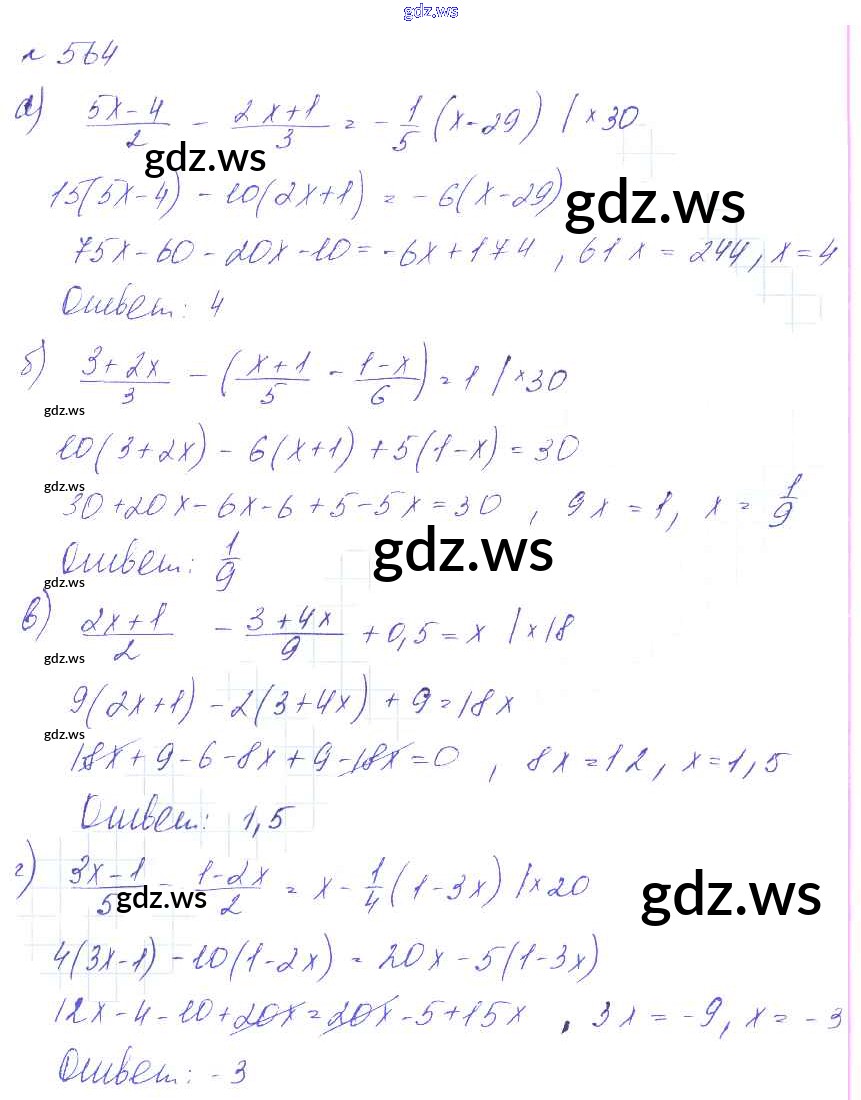 gdz.ws
№ 564
а) (5x-4)/2 - (2x+1)/3 = -1/5 (x-29) | ×30
gdz.ws
15(5x-4) - 10(2x+1) = -6(x-29)
gdz.ws
75x-60-20x-10=-6x+174, 61x=244, x=4
Ответ: 4
б) (3+2x)/3 - ((x+1)/5 - (1-x)/6) = 1 | ×30
gdz.ws
10(3+2x) - 6(x+1) + 5(1-x) = 30
gdz.ws
30+20x-6x-6+5-5x=30, 9x=1, x=1/9
gdz.ws
Ответ: 1/9
gdz.ws
в) (2x+1)/2 - (3+4x)/9 + 0,5 = x | ×18
gdz.ws
9(2x+1) - 2(3+4x) + 9 = 18x
gdz.ws
18x+9-6-8x+9-18x=0, 8x=12, x=1,5
Ответ: 1,5
г) (3x-1)/5 - (1-2x)/2 = x - 1/4 (1-3x) | ×20
gdz.ws
gdz.ws
4(3x-1) - 10(1-2x) = 20x - 5(1-3x)
12x-4-10+20x=20x-5+15x, 3x=-9, x=-3
Ответ: -3